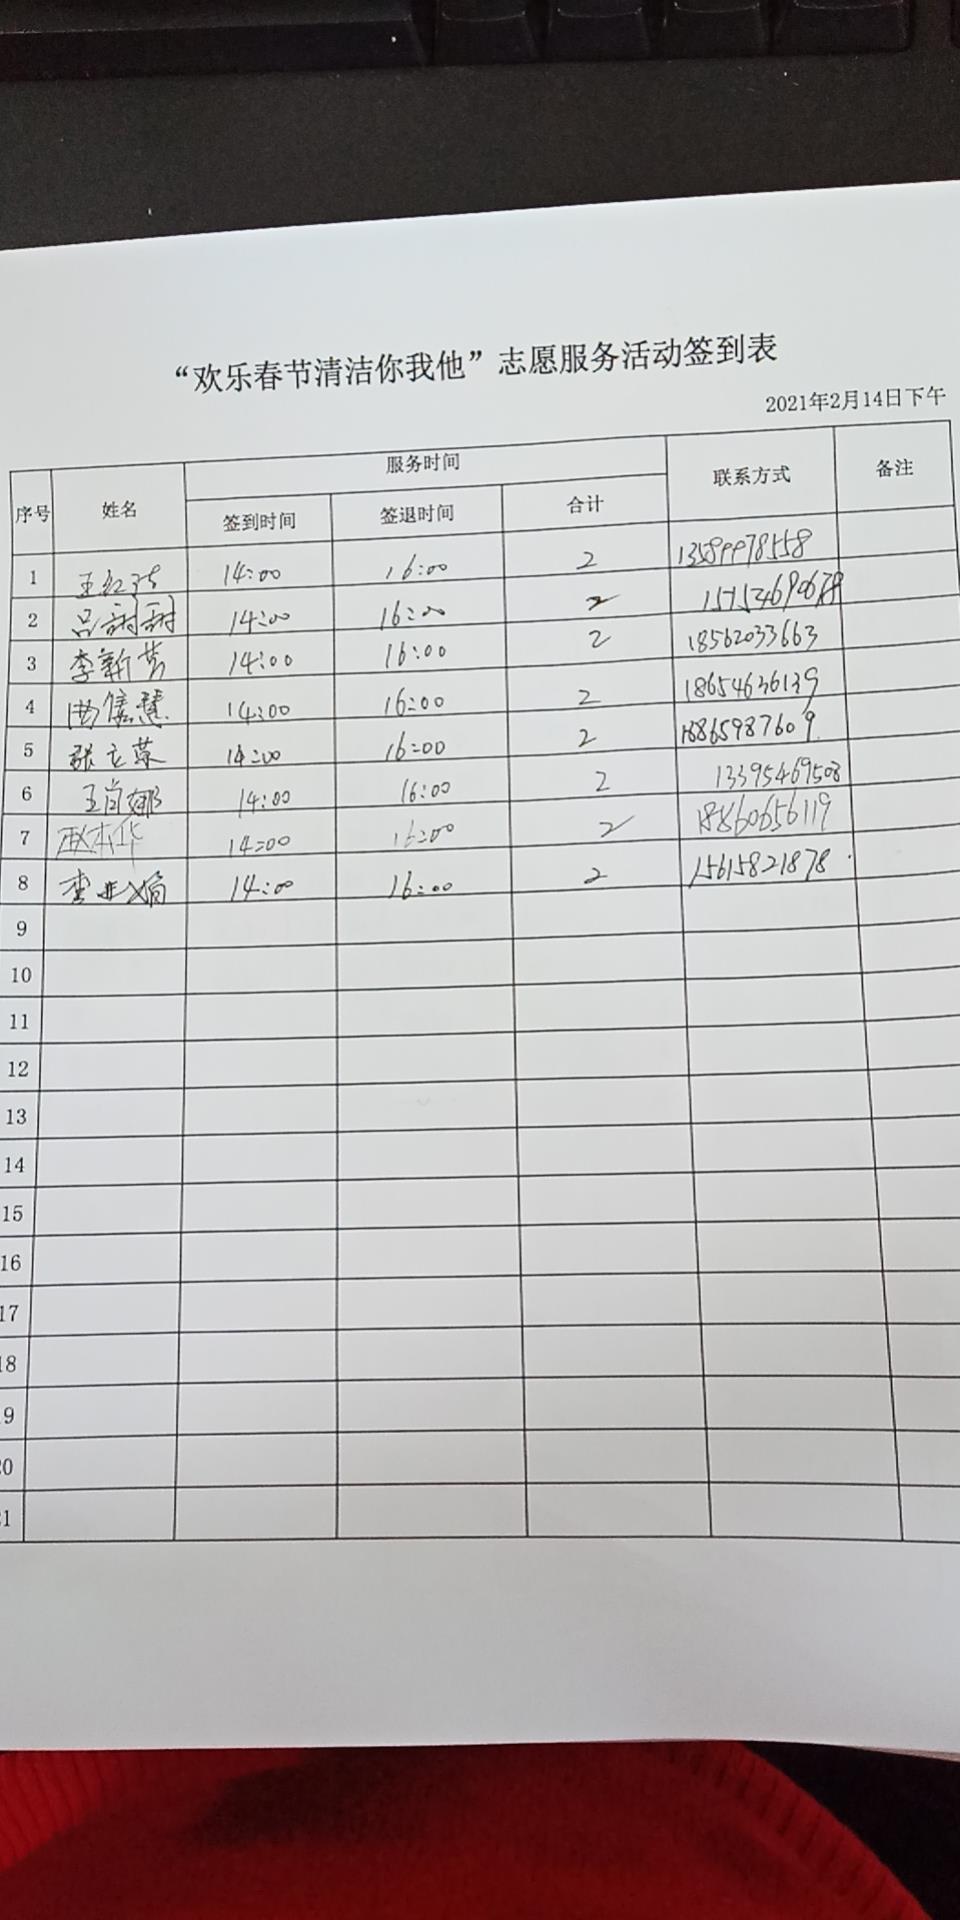 “欢乐春节清洁你我他”志愿服务活动签到表
2021年2月14日下午
序号 姓名 服务时间 联系方式 备注
签到时间 签退时间 合计
1 王红 14:00 16:00 2 13589978558
2 吕甜甜 14:00 16:00 2
3 李新苦 14:00 16:00 2 18562033663
4 慧 14:00 16:00 2 18654636139
5 张立荣 14:00 16:00 2 18865987609
6 王肖娜 14:00 16:00 2 13395469508
7 赵本华 14:00 16:00 2 18860656119
8 李亚娟 14:00 16:00 2 15615821878
9
10
11
12
13
14
15
16
17
18
19
20
21